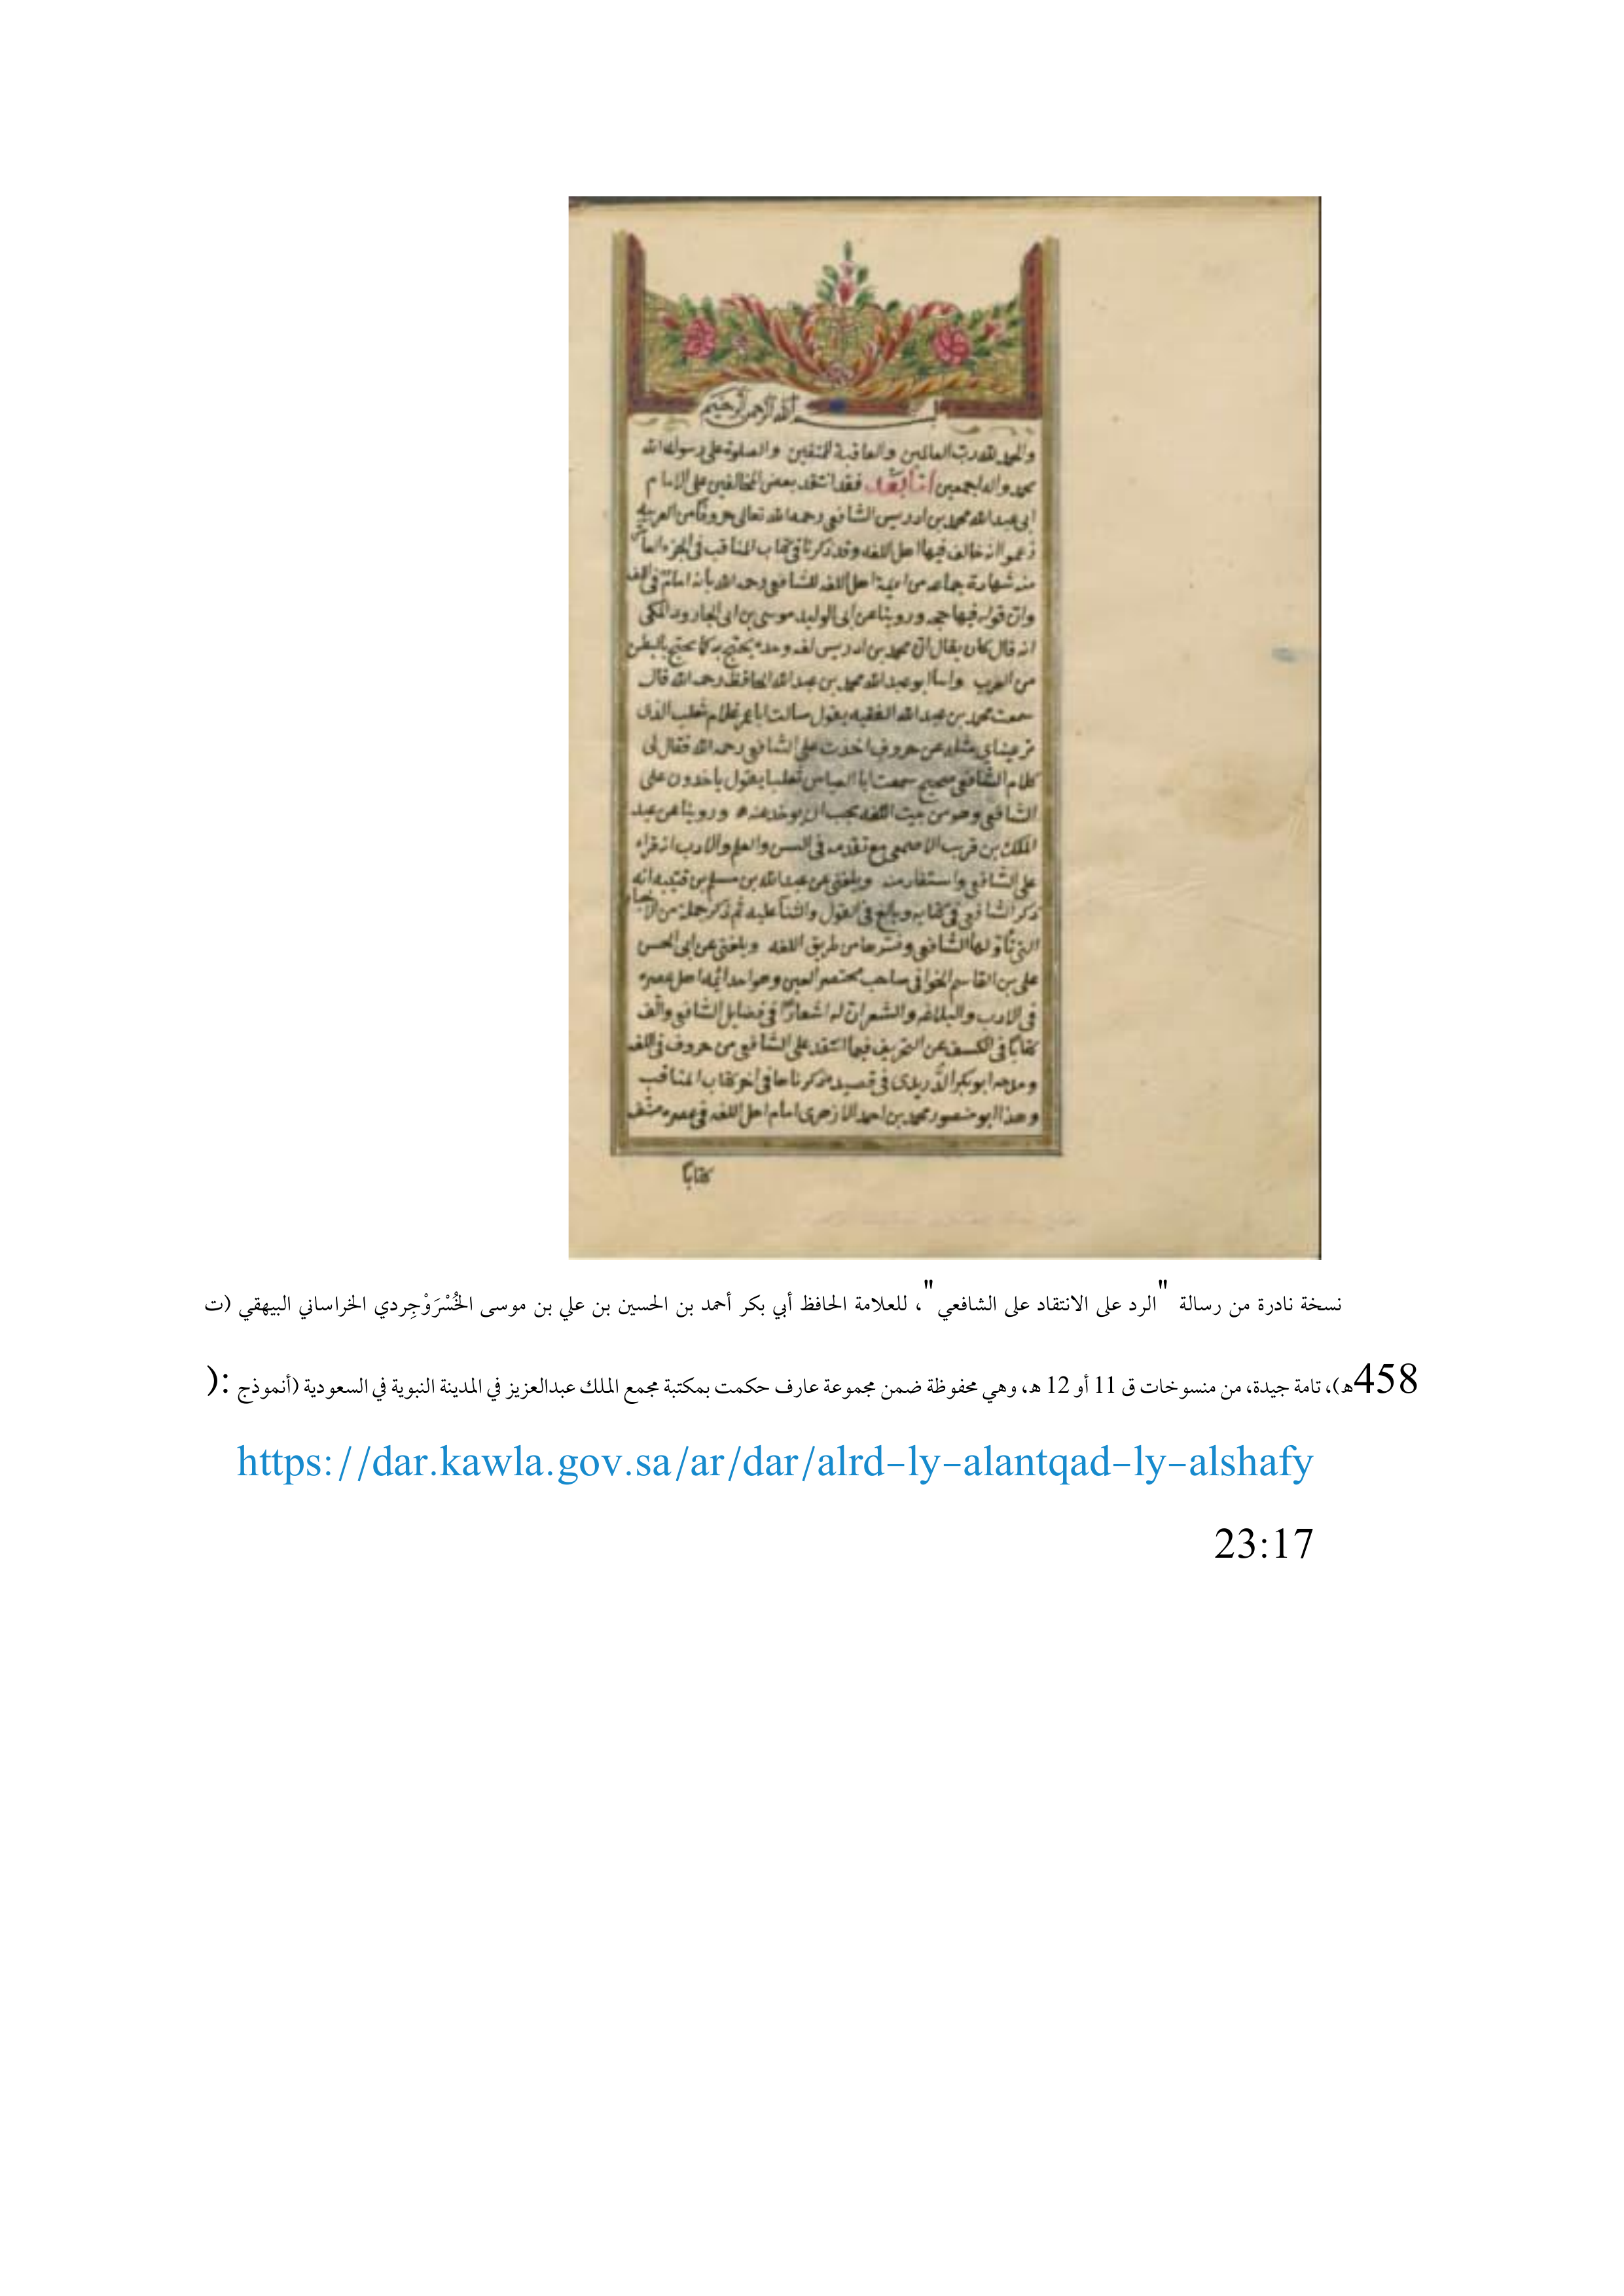 بسم الله الرحمن الرحيم
والحمد لله رب العالمين والعاقبة للمتقين والصلوة على رسوله الله
محمد واله اجمعين اما بعد فقد انتقد بعض المخالفين على الامام
ابى عبد الله محمد بن ادريس الشافعى رحمه الله تعالى حروفا من العربيه
زعموا انه خالف فيها اهل اللغه وقد ذكرنا فى كتاب المناقب فى الجزء
منه شهادة جماعه من ايمة اهل اللغه للشافعى رحمه الله بانه امام فى
وان قوله فيها حجه وروينا عن ابى الوليد موسى بن ابى الجارود المكى
انه قال كان يقال ان محمد بن ادريس لغه وحده يحتج به كما يحتج بالبطن
من العرب وابنا ابو عبد الله محمد بن عبد الله الحافظ رحمه الله قال
سمعت محمد بن عبد الله الفقيه يقول سالت ابا عمر غلام ثعلب الذى
لم تر عيناي مثله عن حروف اخذت على الشافعى رحمه الله فقال لى
كلام الشافعى صحيح سمعت ابا العباس ثعلبا يقول ياخذون على
الشافعى وهو من بيت اللغه يجب ان يوخذ عنه وروينا عن عبد
الملك بن قريب الاصمعى مع تقدمه فى السن والعلم والادب انه قراء
على الشافعى واستفاد منه وبلغنى عن عبد الله بن مسلم بن قتيبه انه
ذكر الشافعى فى كتابه وبالغ فى القول والثنا عليه ثم ذكر جملة من الاخبار
التى تأولها الشافعى وفسرها من طريق اللغه وبلغنى عن ابى الحسن
على بن القاسم الخوافى صاحب مختصر العين وهو احد ائمة اهل عصره
فى الادب والبلاغه والشعر ان له اشعارا فى فضايل الشافعى والف
كتابا فى الكسف عن التحريف فيما انتقد على الشافعى من حروف فى اللغه
ومدحه ابو بكر الدريدى فى قصيده ذكرناها فى اخر كتاب المناقب
وهذا ابو منصور محمد بن احمد الازهرى امام اهل اللغه فى عصره صنف
كتابا
نسخة نادرة من رسالة "الرد على الانتقاد على الشافعي"، للعلامة الحافظ أبي بكر أحمد بن الحسين بن علي بن موسى الخُسْرَوْجِردي الخراساني البيهقي (ت
458هـ)، تامة جيدة، من منسوخات ق 11 أو 12 هـ، وهي محفوظة ضمن مجموعة عارف حكمت بمكتبة مجمع الملك عبدالعزيز في المدينة النبوية في السعودية (أنموذج :(
https://dar.kawla.gov.sa/ar/dar/alrd-ly-alantqad-ly-alshafy
23:17